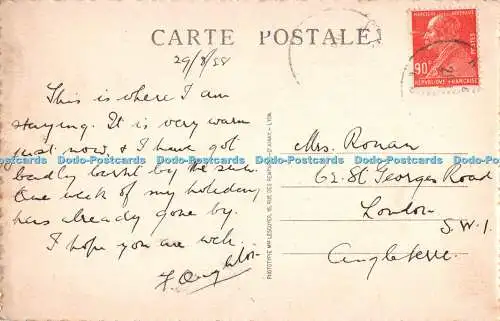 CARTE POSTALE
29/8/
This is where I am
staying. It is very warm
just now, & I have got
badly burnt by the sun.
One week of my holiday
has already gone by.
I hope you are well.
Mrs. Ronan
62. St Georges Road
London
S.W.1.
Angleterre.
MARCELIN BERTHELOT
90
POSTES
RÉPUBLIQUE FRANÇAISE
Dodo-Postcards Dodo-Postcards Dodo-Postcards Dodo-Postcards Dodo-Postcards Dodo-Postcards